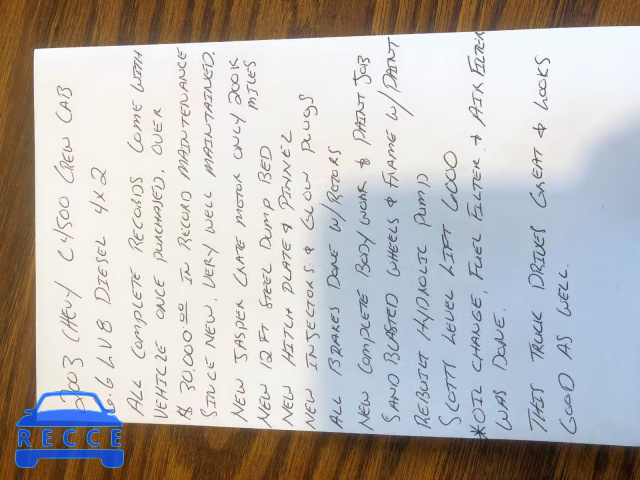 2003 CHEVY C4500 CREW CAB
6.6 L V8 DIESEL 4X2
ALL COMPLETE RECORDS COME WITH
VEHICLE ONCE PURCHASED. OVER
$ 30,000.00 IN RECORD MAINTENANCE
SINCE NEW. VERY WELL MAINTAINED.
NEW JASPER CRATE MOTOR ONLY 200K
MILES
NEW 12 FT STEEL DUMP BED
NEW HITCH PLATE & PINNEL
NEW INJECTORS & GLOW PLUGS
ALL BRAKES DONE W/ ROTORS
NEW COMPLETE BODY WORK & PAINT JOB
SAND BLASTED WHEELS & FRAME W/ PAINT
REBUILT HYDROLIC PUMP
SCOTT LEVEL LIFT 6000
*OIL CHANGE, FUEL FILTER & AIR FILTER
WAS DONE.
THIS TRUCK DRIVES GREAT & LOOKS
GOOD AS WELL.
RECCE